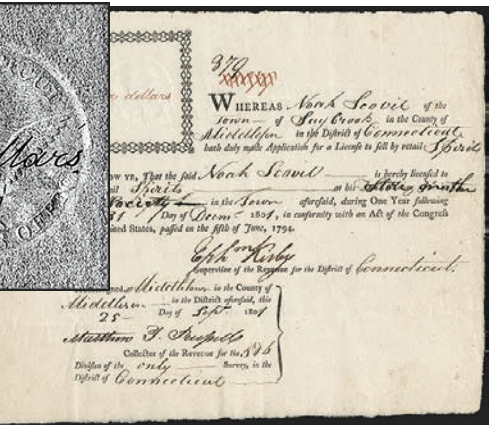 dollars
379
WHEREAS Noah Scovil of the
Town of Say Brook in the County of
Middlesex in the District of Connecticut
hath duly made Application for a License to sell by retail: Spirits
ow ye, That the said Noah Scovil is hereby licensed to
Spirits at his Store
in the Town aforesaid, during One Year following
31 Day of Decm 1801, in conformity with an Act of the Congress
nited States, passed on the fifth of June, 1794.
Ephm Kirby
Supervisor of the Revenue for the District of Connecticut.
at Middletown in the County of
Middlesex in the District aforesaid, this
25 Day of Sept 1801
Matthew T. Russell
Collector of the Revenue for the
Division of the only Survey, in the
District of Connecticut
llars.